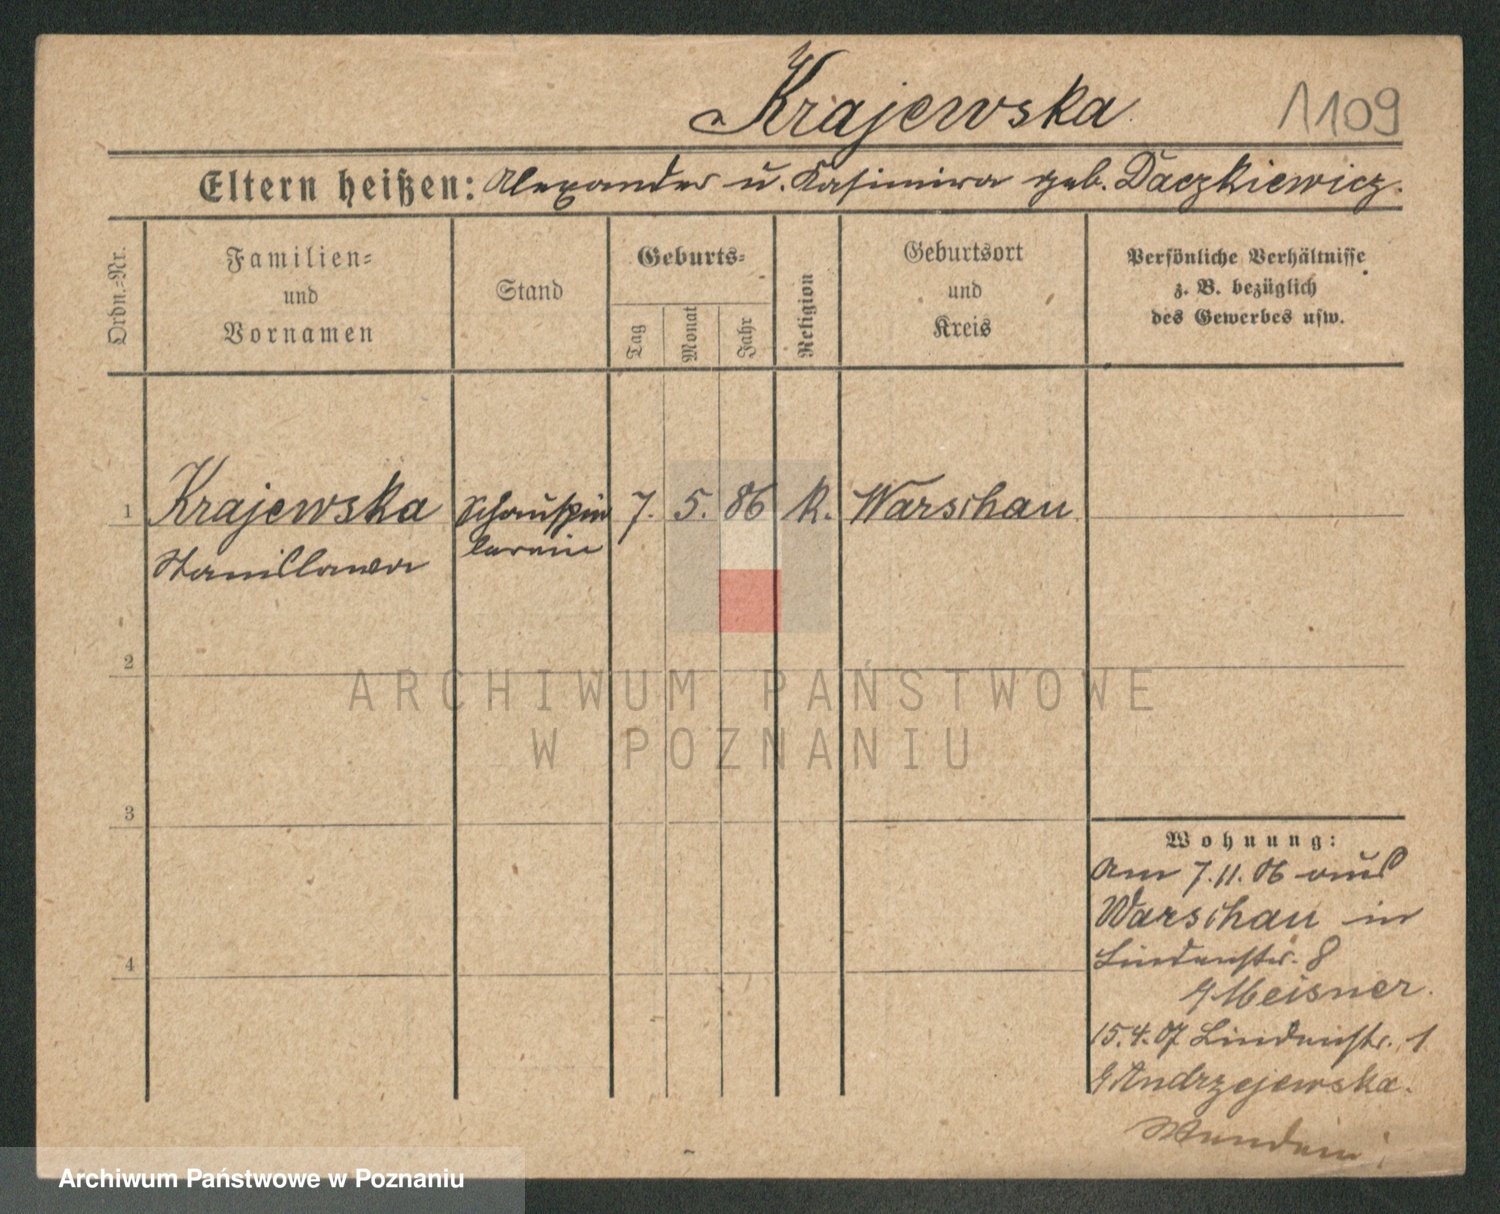 Krajewska 1109
Eltern heißen: Alexander u. Kasimira geb. Daczkiewicz.
Ordn.-Nr.
Familien-
und
Vornamen
Stand
Geburts-
Tag
Monat
Jahr
Religion
Geburtsort
und
Kreis
Persönliche Verhältnisse
z. B. bezüglich
des Gewerbes usw.
1 Krajewska Schauspie 7. 5. 86 K. Warschau
Stanislawa lerin
2
3
4
ARCHIWUM PAŃSTWOWE
W POZNANIU
Wohnung:
Am 7.11.06 aus
Warschau in
Lindenstr. 8
Meisner.
15.4.07 Lindenstr. 1
Andrzejewska.
Archiwum Państwowe w Poznaniu